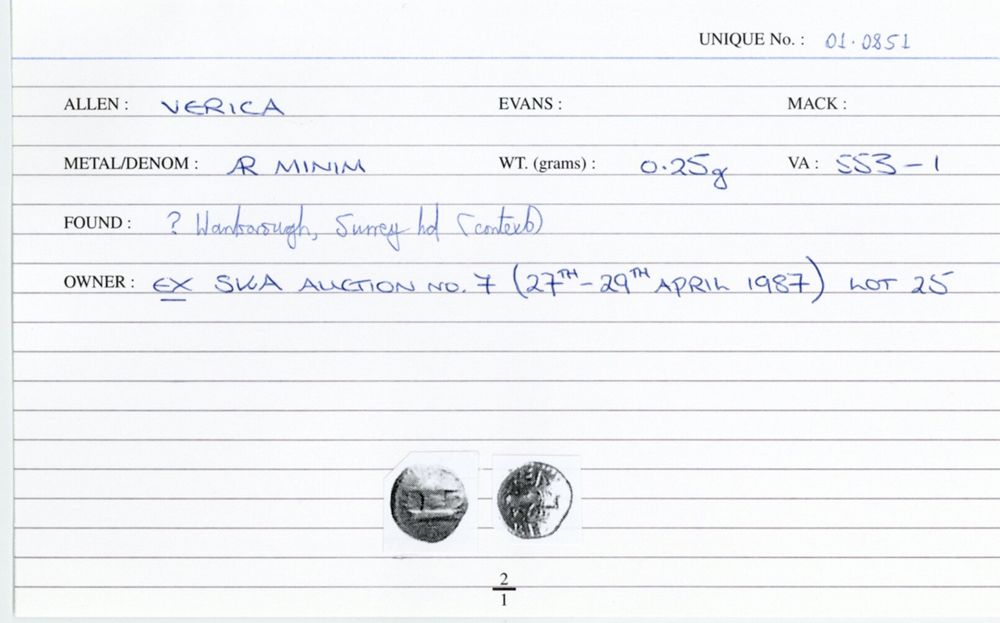 UNIQUE No. : 01·0851
ALLEN : VERICA EVANS : MACK :
METAL/DENOM : AR MINIM WT. (grams) : 0.25g VA : 553-1
FOUND : ? Wanborough, Surrey hd (context)
OWNER : EX SKA AUCTION NO. 7 (27TH-29TH APRIL 1987) LOT 25
2
1